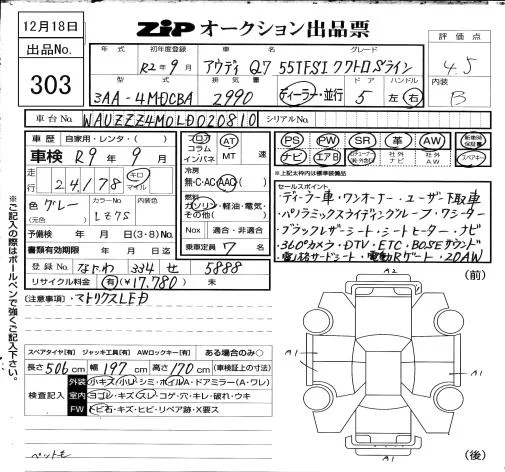 12月18日
ZIP オークション出品票
出品No.
303
年式 初年度登録 車名 グレード
R2年9月 アウディ Q7 55TFSI クワトロSライン
型式 排気量 ドア ハンドル
3AA-4MDCBA 2990 ディーラー・並行 5 左 右
評価点
4.5
内装
B
車台No. WAUZZZ4M0LD020810 シリアルNo.
車歴 自家用・レンタ・( )
車検 R9年9月
走行 24,178 キロ マイル
色 グレー
(元色)
カラーNo. LZ7S
内装色
予備検 年 月 日(3・8)No.
書類有効期限 年 月 日迄
登録No. なにわ 334 せ 5888
リサイクル料金 有(¥17,780) 未
フロア
コラム
インパネ
AT
MT
速
冷房
無・C・AC・AAC
燃料
ガソリン・軽油・電気・
その他( )
Nox 適合・非適合
乗車定員 7 名
PS PW SR 革 AW
ナビ エアB 社外ナビ 社外AW スペアキー
※上記太枠内は標準装備品
セールスポイント
・ディーラー車・ワンオーナー・ユーザー下取車
・パノラミックスライディングルーフ・7シーター
・ブラックレザーシート・シートヒーター・ナビ
・360°カメラ・DTV・ETC・BOSEサウンド
・電動Rゲート・20AW
(注意事項)・マトリクスLED
スペアタイヤ[有] ジャッキ工具[有] AWロックキー[有] ある場合のみ○
長さ506cm 幅197cm 高さ170cm (車検証上の寸法)
検査記入
外装 小キズ・小凹・シミ・ホイルA・ドアミラー(A・ワレ)
室内 ヨゴレ・キズ・スレ・コゲ・穴・キレ・破れ・ウキ
FW トビ石・キズ・ヒビ・リペア跡・X要ス
ペットモ
(前)
A2
A1
A1
A1
(後)
※ご記入の際はボールペンで強くご記入下さい。